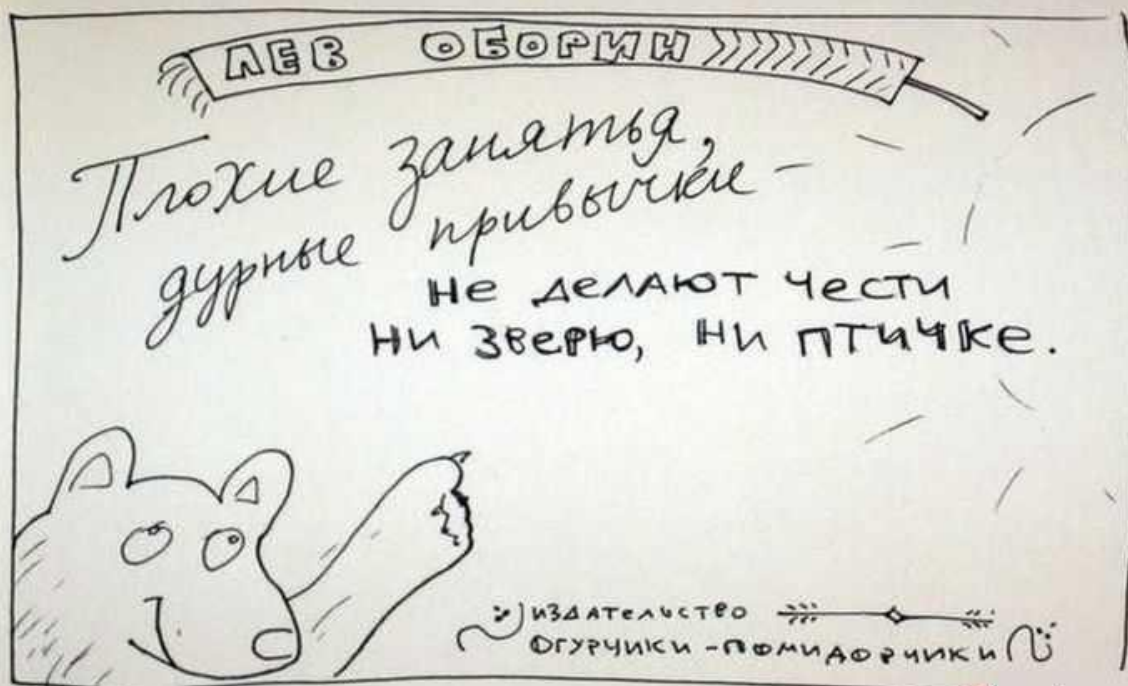 ЛЕВ ОБОРИН
Плохие занятья,
дурные привычки –
не делают чести
ни зверю, ни птичке.
ИЗДАТЕЛЬСТВО
ОГУРЧИКИ-ПОМИДОРЧИКИ